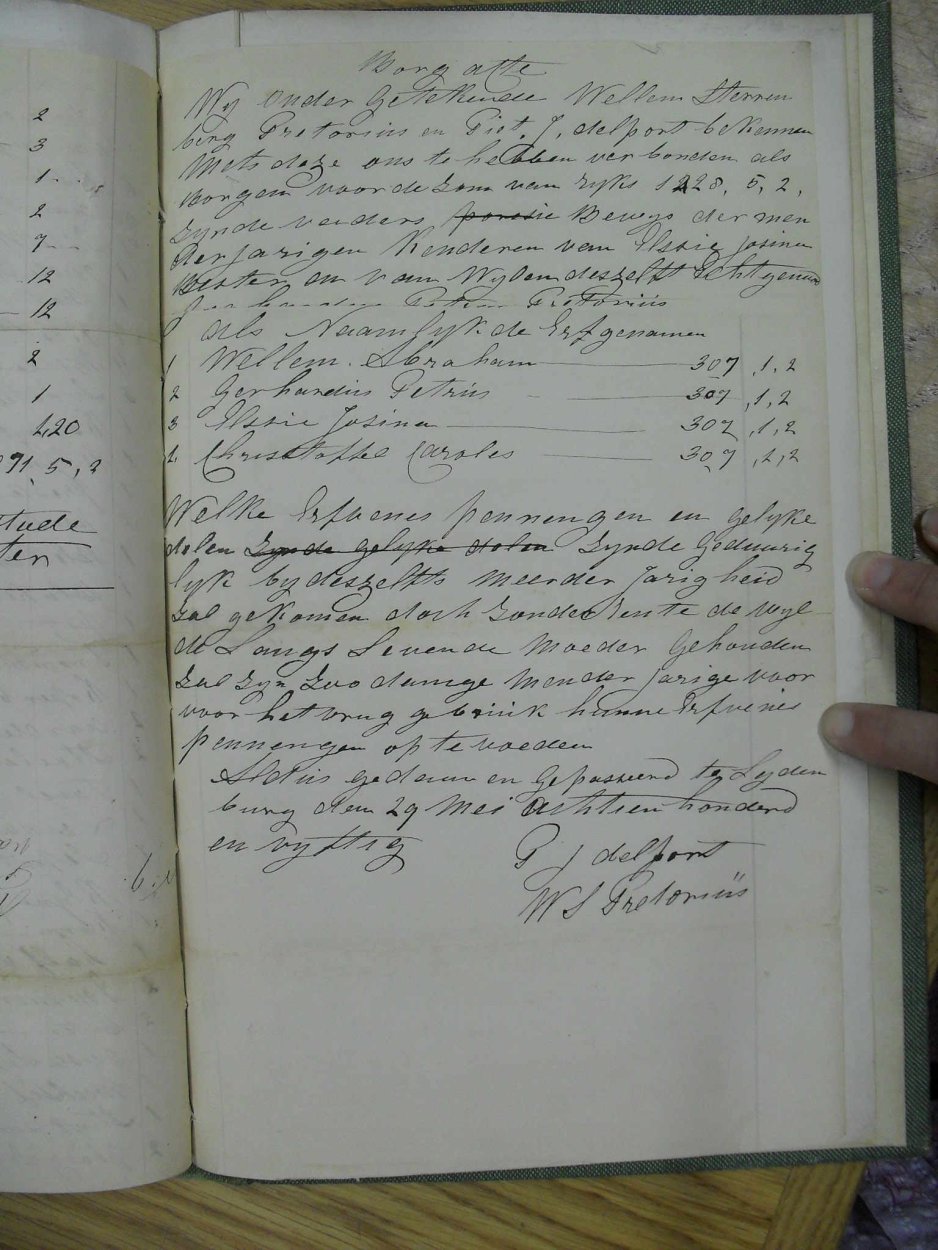 2
3
1
2
7
12
12
2
1
420
91, 5, 2
Borg atte
Wy onder getekende Wellem Sterren
berg Pretorius en Piet. J. delport bekennen
Mets deze ons te hebben verbonden als
borgen voor de Zom van Ryks 1228, 5, 2,
Zynde vaders porsie Bewys der men
derjarigen Kenderen van Elssie Josina
en van Wylen deszelfs Echtgenoot
Pretorius
als Naamlyk de Erfgenamen
1 Wellem Abraham 307 ,1,2
2 Gerhardus Petrus 307 ,1,2
3 Elssie Josina 307 ,1,2
4 Christoffel Caroles 307 ,1,2
Welke Erfvenes pennengen en gelyke
delen Zynde gelyke delen Zynde Geduurig
lyk by deszelfs meerder Jarigheid
zal gekomen doch zonder rente de wyl
de Langs Levende Moeder gehouden
zal zyn zoo damige mender Jarige voor
voor het vrug gebruik hunne Erfvenes
pennengen op te voeden
Aldus gedaan en Gepasseerd te Leyden
burg den 29 Mei Achtien honderd
en vyftig
P J delport
W S Pretorius